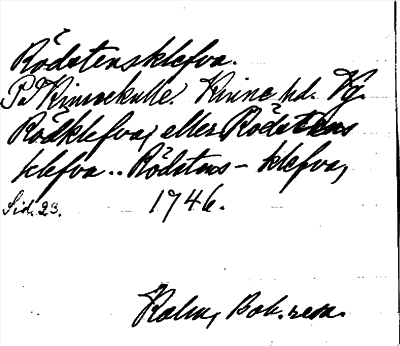 Rödstensklefva.
På Kinnekulle. Kinne hd. Vg.
Rödklefva, eller Rödstens
klefva .. Rödstens-klefva,
Sid. 23. 1746.
Kalm, Boh. resa.